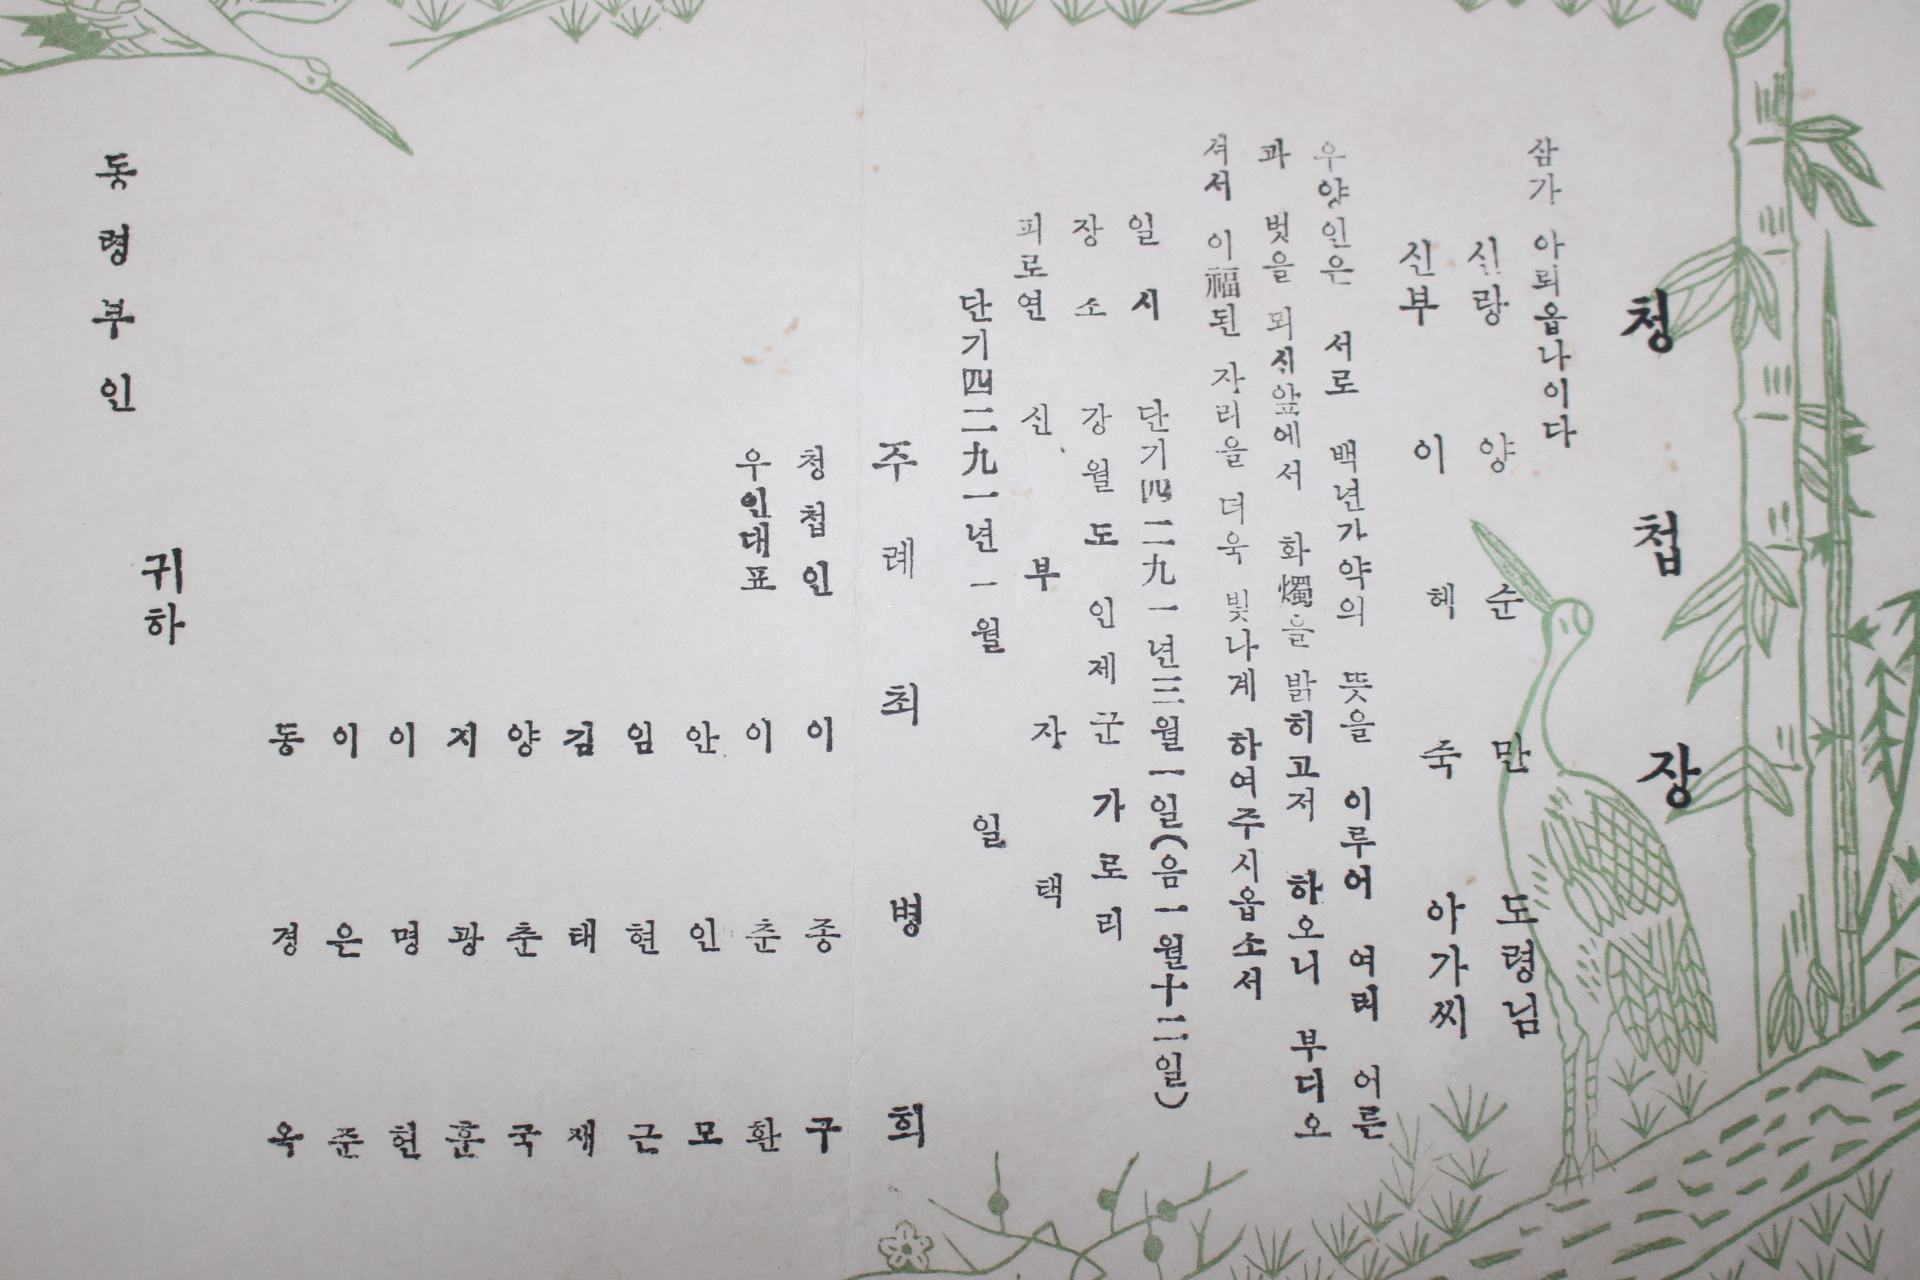 청첩장
삼가 아뢰옵나이다
신랑 양순만 도령님
신부 이혁죽 아가씨
우양인은 서로 백년가약의 뜻을 이루어 여러 어른
과 벗을 뫼시앞에서 화燭을 밝히고저 하오니 부디오
셔서 이福된 자리을 더욱 빛나게 하여주시옵소서
일시 단기四二九一년三월一일(음一월十二일)
장소 강월도 인제군 가로리
피로연 신부자택
단기四二九一년一월 일
주례 최병희
청첩인 이종구
우인대표 이춘환
안인모
임현근
김태재
양춘국
지광훈
이명헌
이은준
동경옥
귀하
동령부인